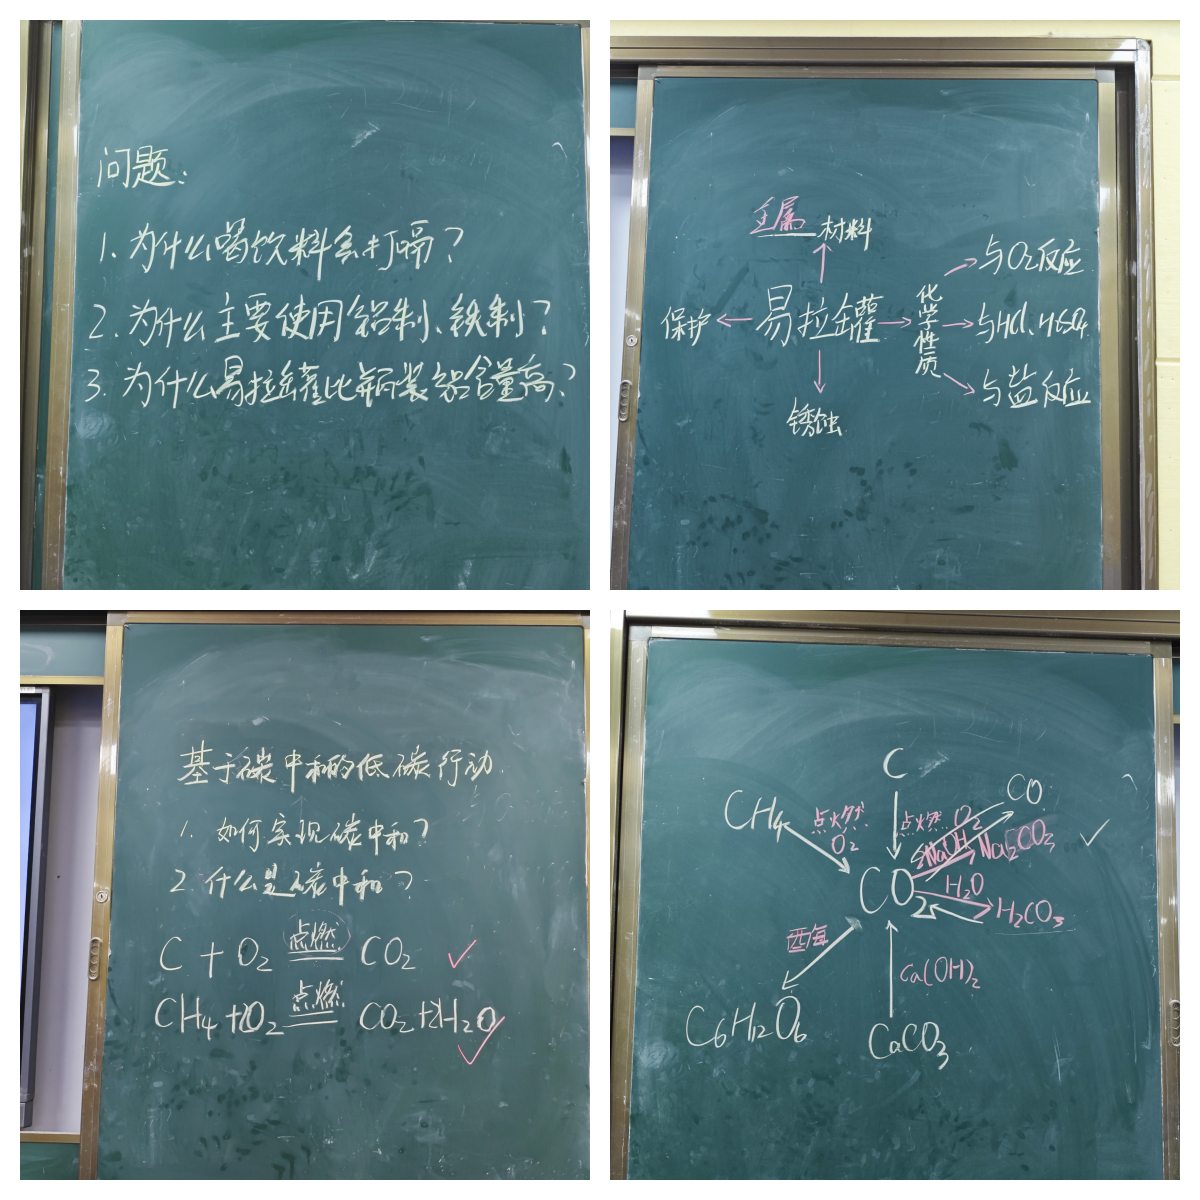 问题:
1. 为什么喝饮料会打嗝?
2. 为什么主要使用铝制、铁制?
3. 为什么易拉罐比瓶装铝含量高?
金属 材料
保护 ← 易拉罐 → 化学性质
与O2反应
与HCl、H2SO4
与盐反应
锈蚀
基于碳中和的低碳行动
1. 如何实现碳中和?
2. 什么是碳中和?
C + O2 点燃 CO2 ✓
CH4+2O2 点燃 CO2+2H2O ✓
C
CH4 点燃 O2
点燃 O2 CO
NaOH Na2CO3 ✓
CO2 H2O H2CO3
C6H12O6
Ca(OH)2
CaCO3